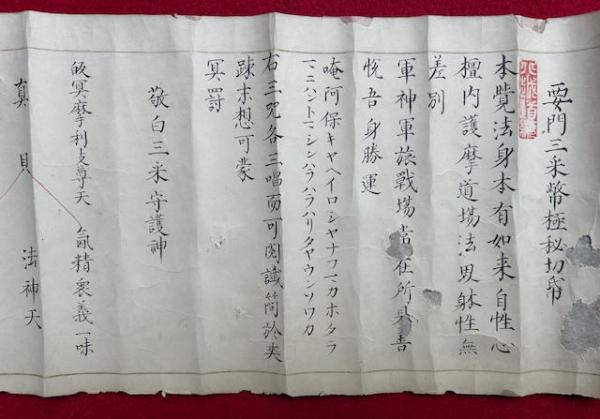 要門三采幣極秘切帋
本覺法身本有如来自性心
檀内護摩道場法界躰性無
差別
軍神軍旅戦場常在所具善
悦吾身勝運
唵阿保キヤヘイロシヤナフマカホタラ
マニハントマシンハラハラハリタヤウンソワカ
右三咒各三唱而可閲讖簡於夾
踈末想可蒙
冥罸
敬白三采守護神
皈冥摩利支尊天　氤精衆義一味
真　貝　法神天